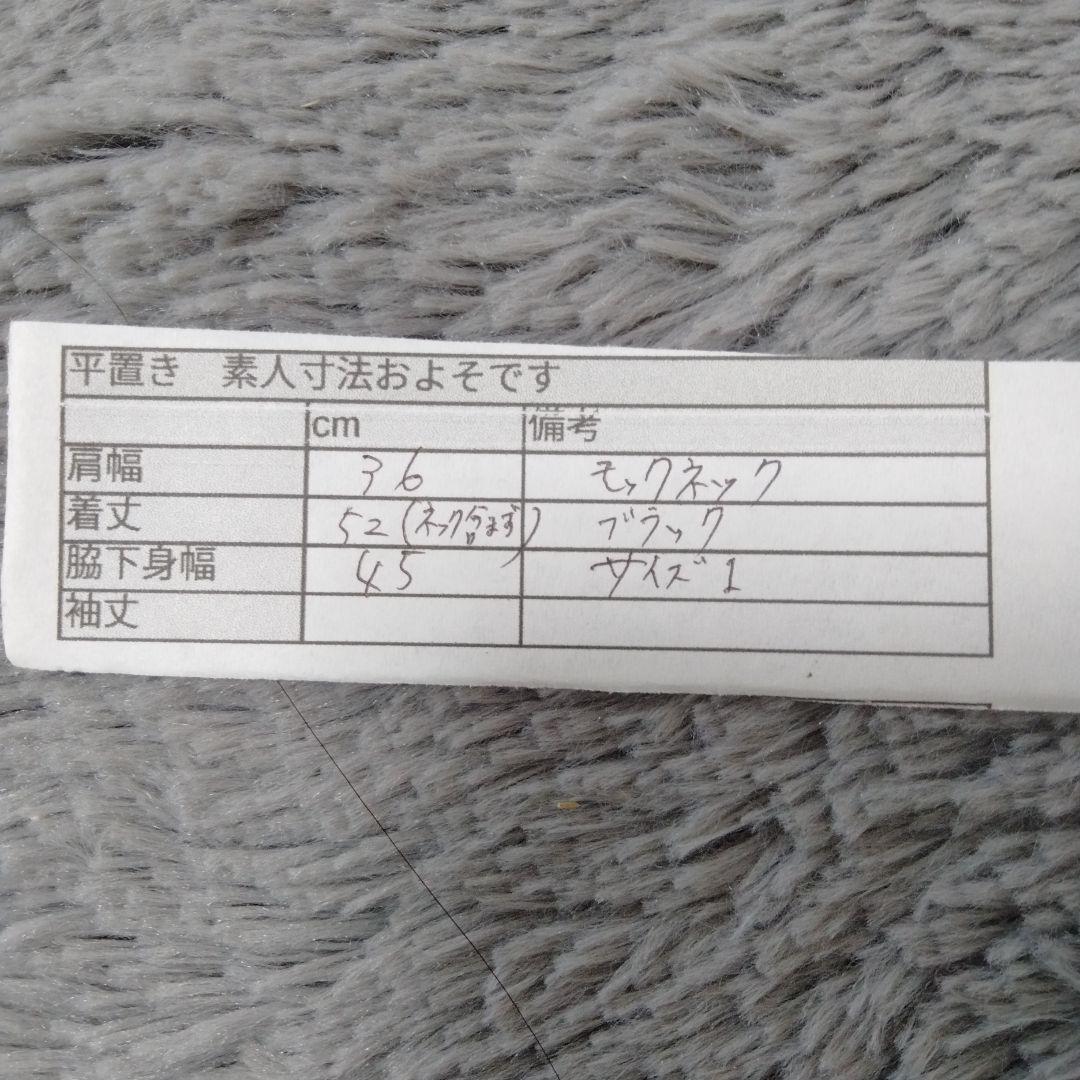 平置き 素人寸法およそです
cm 備考
肩幅 36 モックネック
着丈 52(ネック含まず) ブラック
脇下身幅 45 サイズ1
袖丈